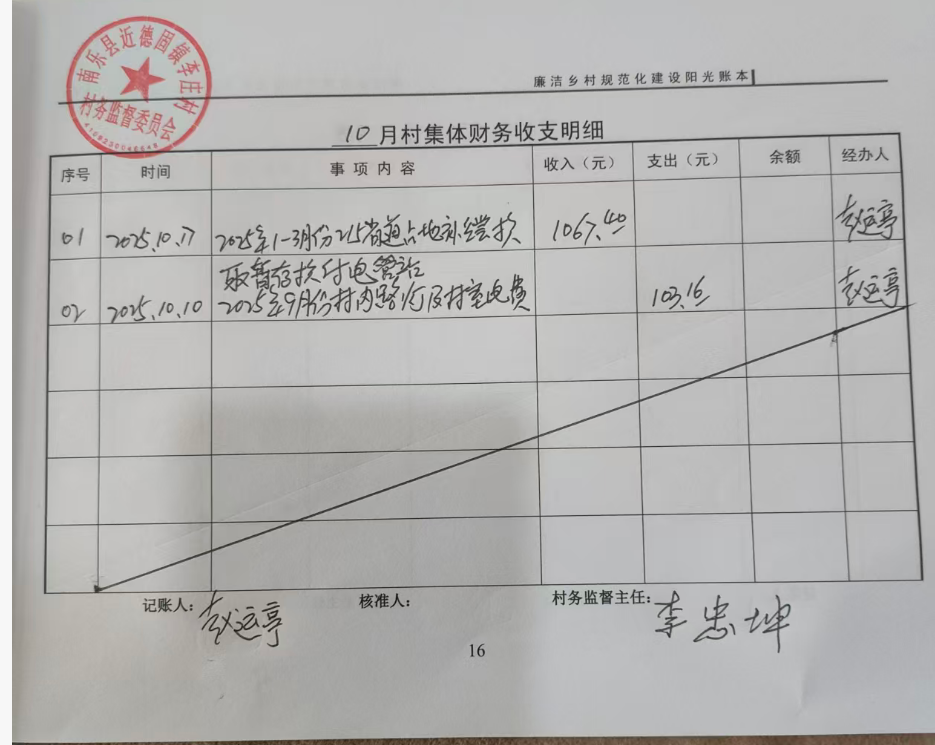 南乐县近德固镇李庄村
村务监督委员会
廉洁乡村规范化建设阳光账本
10月村集体财务收支明细
序号 时间 事项内容 收入（元） 支出（元） 余额 经办人
01 2025.10.17 2025年1-3月份215省道占地补偿款 1067.40 赵运亭
取暂存款付电管站
02 2025.10.10 2025年9月份村内路灯及村室电费 103.16 赵运亭
记账人：赵运亭 核准人： 村务监督主任：李忠坤
16